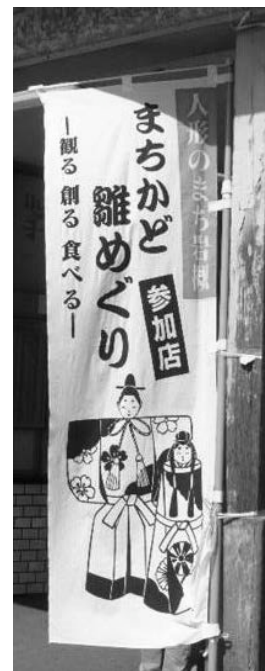 人形のまち岩槻
まちかど
雛めぐり
参加店
ー観る 創る 食べるー